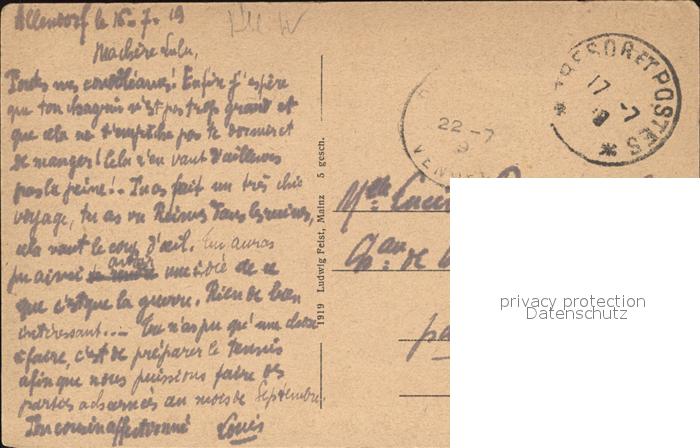 Allendorf le 16-7-19
Ma chère Lulu,
Toutes mes condoléances! Enfin j'espère
que ton chagrin n'est pas trop grand et
que cela ne t'empêche pas de dormir et
de manger! Cela n'en vaut d'ailleurs
pas la peine!.. Tu as fait un très chic
voyage, tu as vu Reims dans les ruines,
cela vaut le coup d'œil. Tu auras
pu ainsi avoir une idée de ce
que c'est que la guerre. Rien de bien
intéressant... Tu n'as pu qu'une chose
à faire, c'est de préparer le tennis
afin que nous puissions faire des
parties acharnées au mois de Septembre.
Ton cousin affectionné Louis
1919 Ludwig Feist, Mainz 5 gesch.
22-7
TRESOR ET POSTES
17 -7
19
Melle
de
privacy protection
Datenschutz